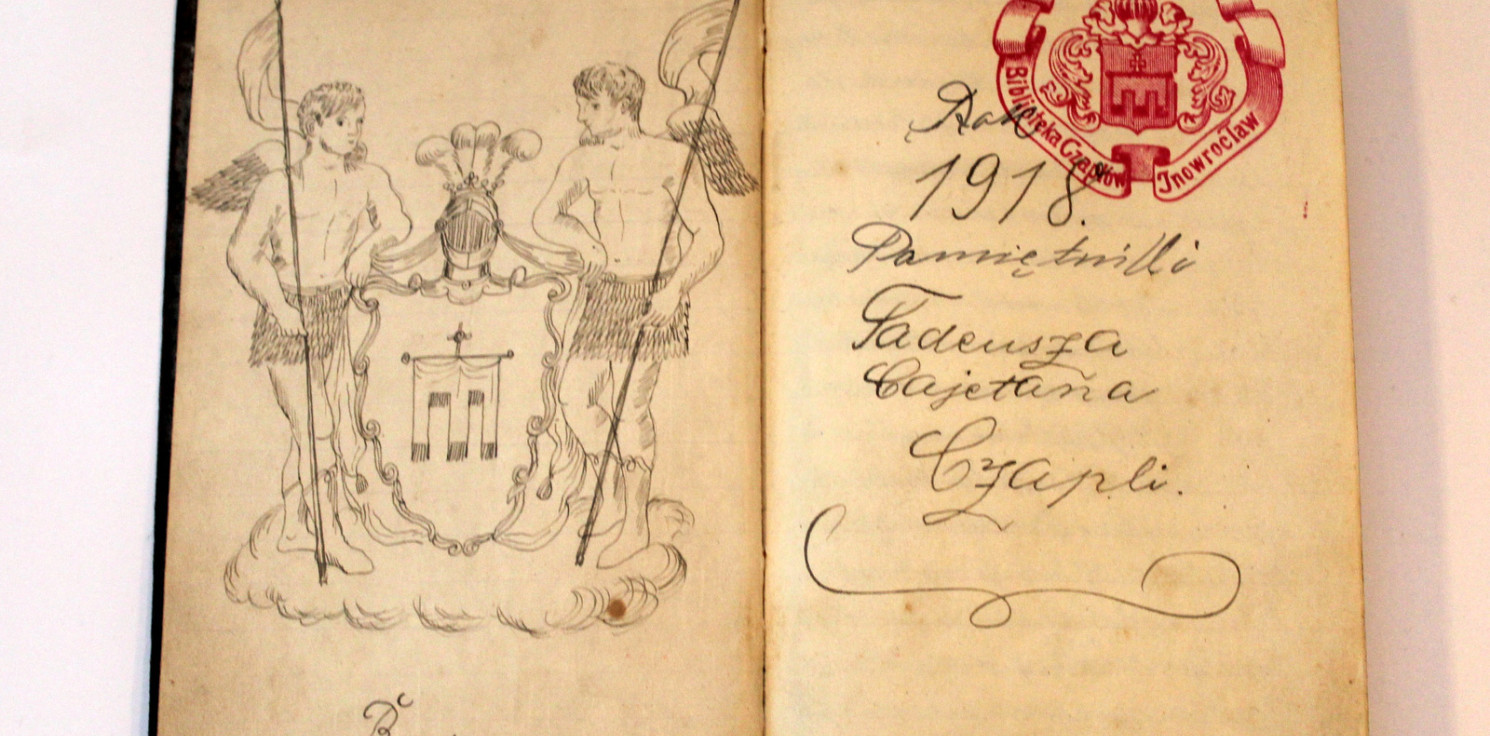 Biblioteka Czaplów Jnowrocław
Rok
1918.
Pamiętniki
Tadeusza
Cajetana
Czapli.